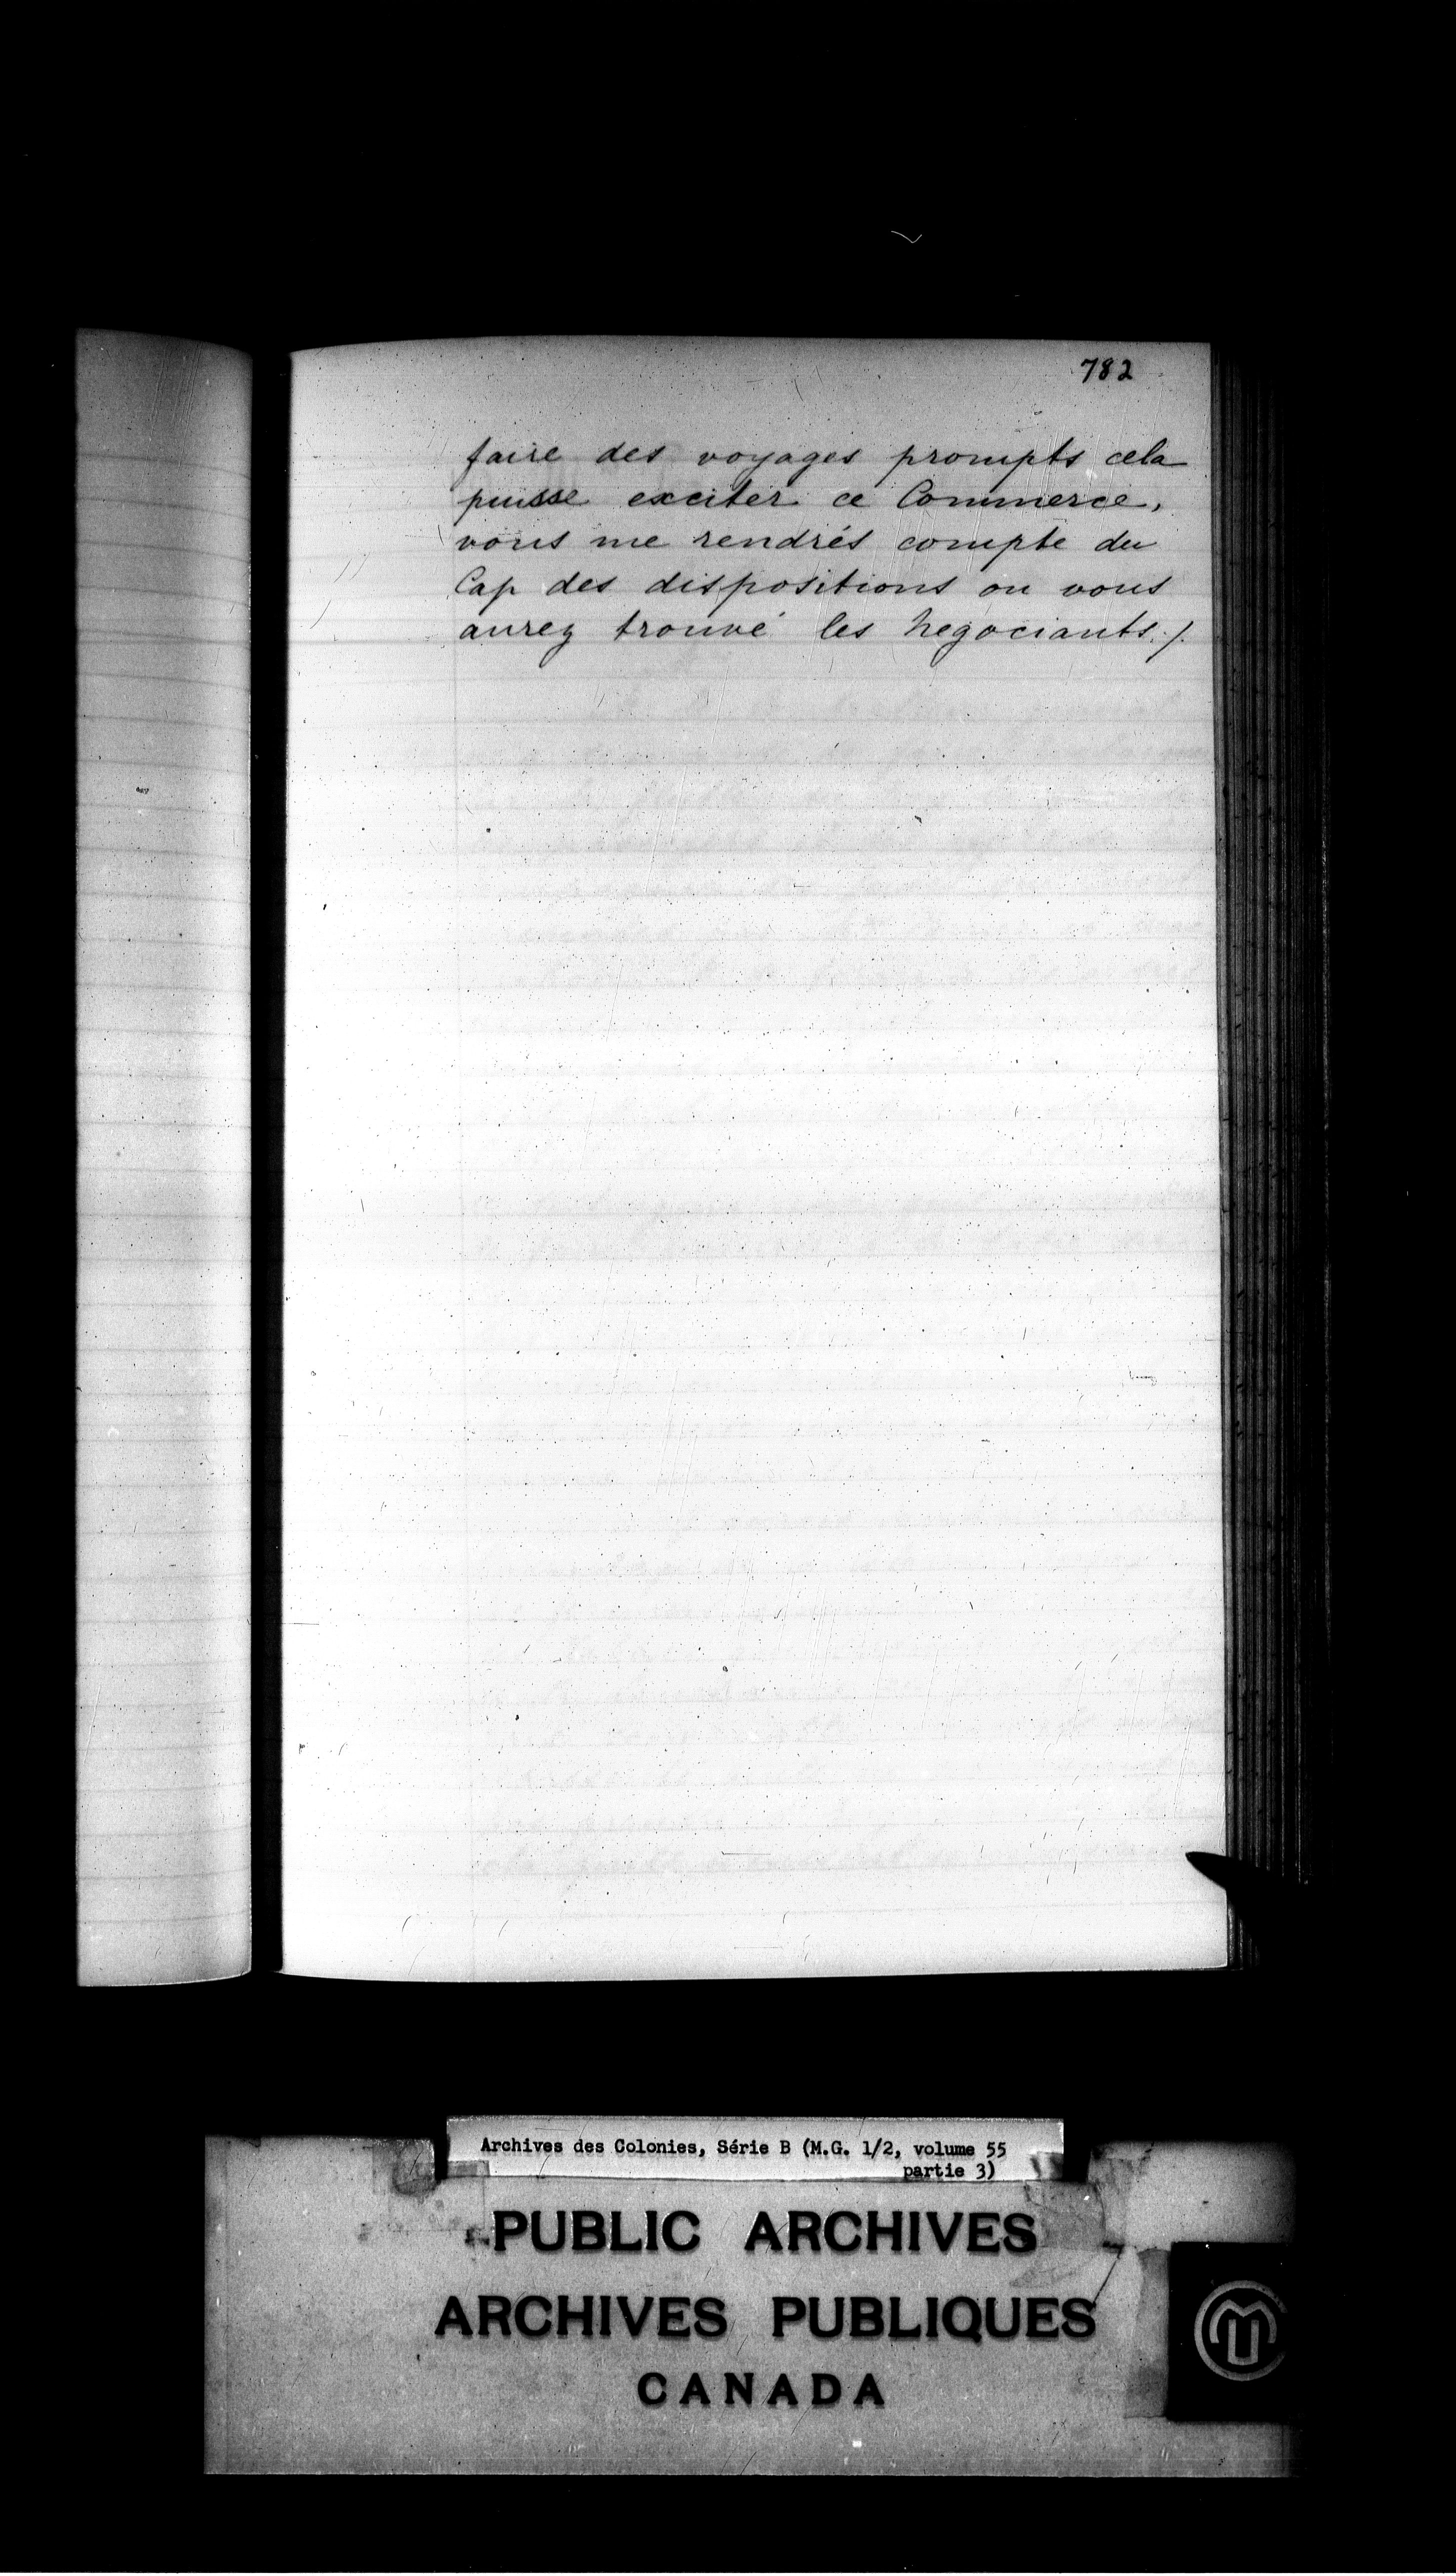 782
faire des voyages prompts cela
puisse exciter ce Commerce,
vous me rendrés compte du
Cap des dispositions ou vous
aurez trouvé les negociants./.
Archives des Colonies, Série B (M.G. 1/2, volume 55
partie 3)
PUBLIC ARCHIVES
ARCHIVES PUBLIQUES
CANADA